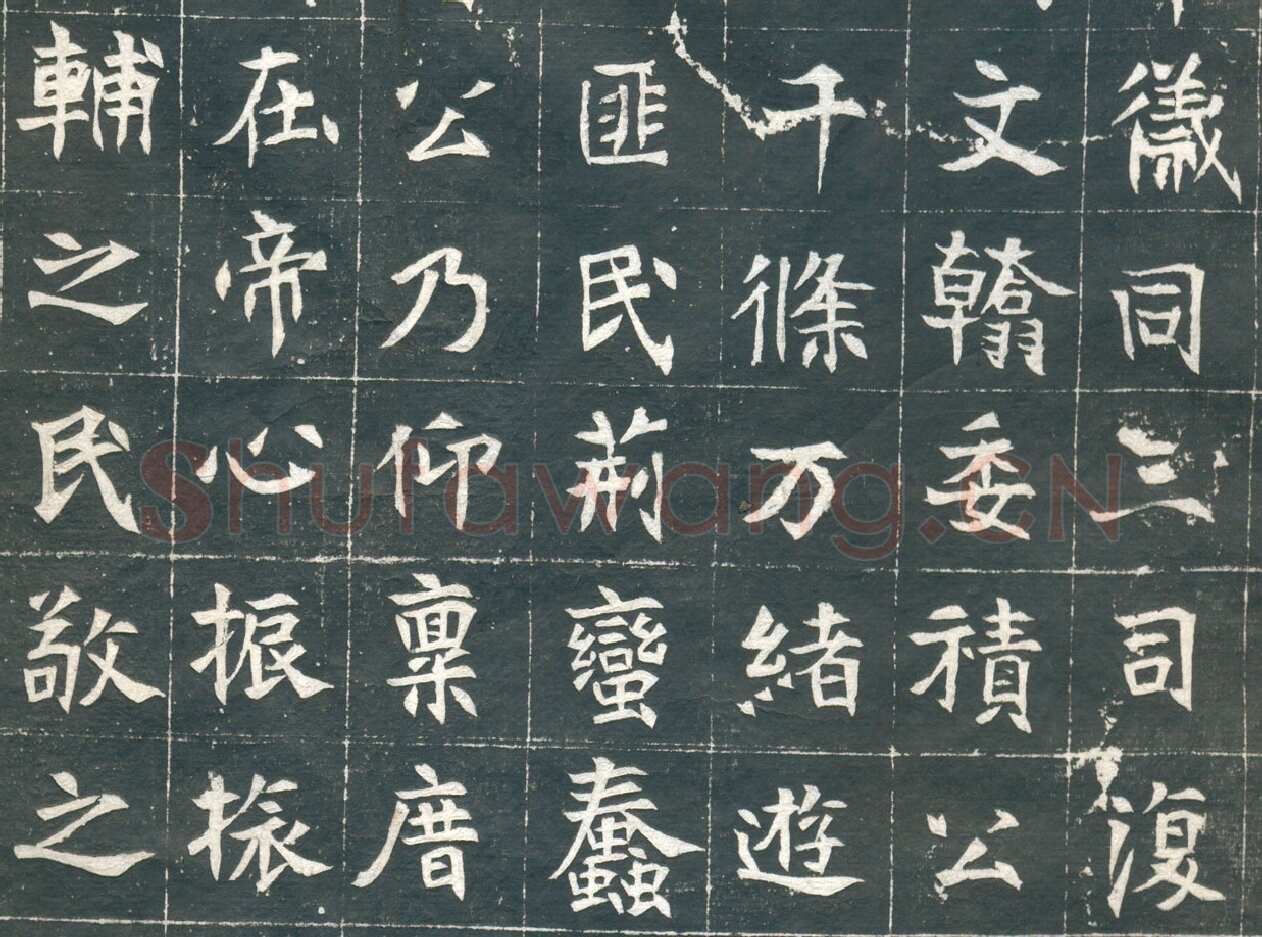 儀同三司復
文翰委積公
千條万緒遊
匪民荊蠻蠢
公乃仰禀庿
在帝心振振
輔之民敬之
Shufawang.CN